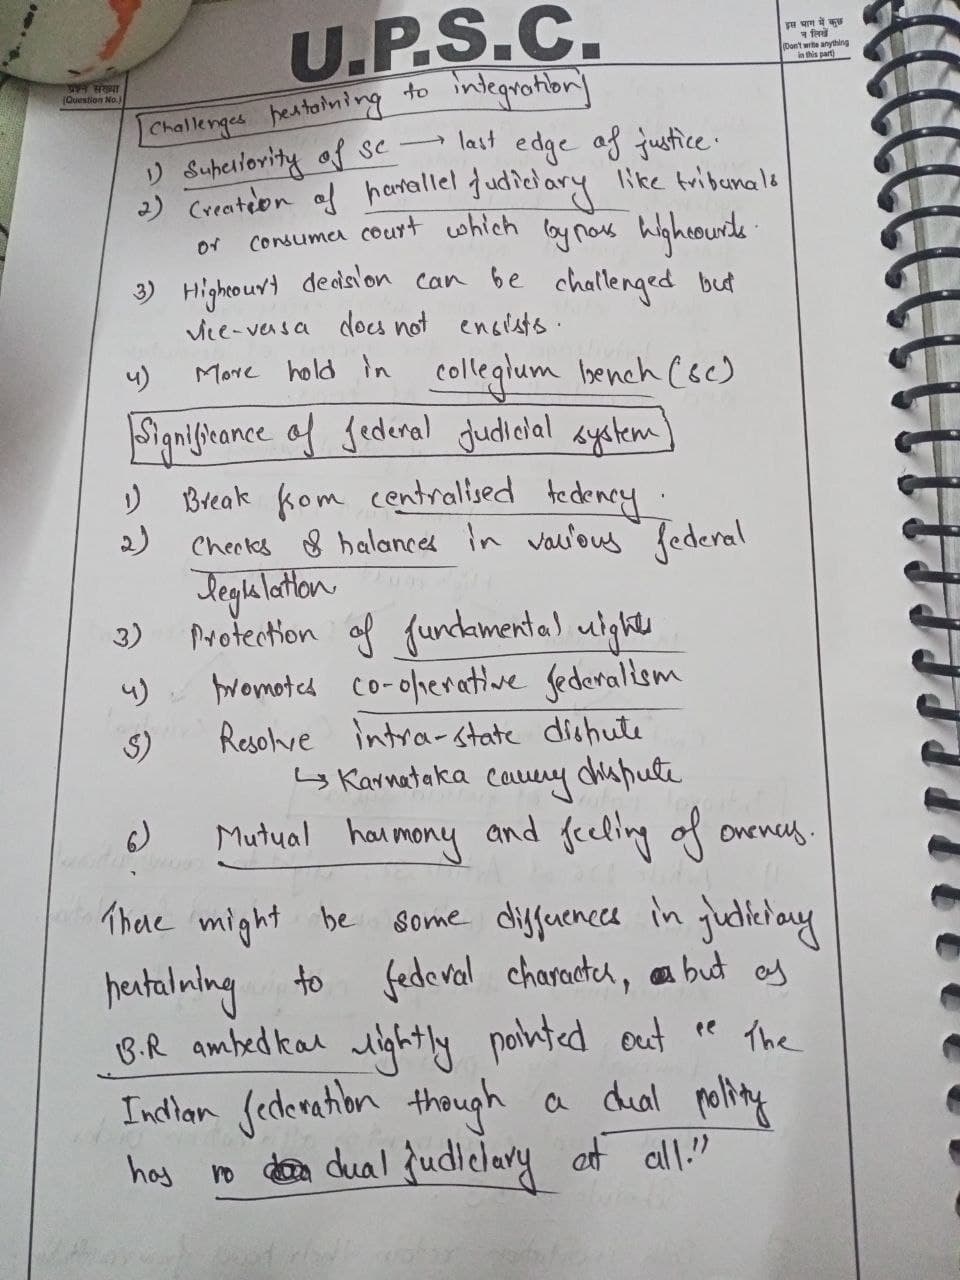 U.P.S.C.
प्रश्न संख्या
(Question No.)
इस भाग में कुछ
न लिखें
(Don't write anything
in this part)
Challenges pertaining to integration
1) Superiority of SC → last edge of justice.
2) Creation of parallel judiciary like tribunals
or consumer court which bypass highcourts.
3) Highcourt decision can be challenged but
vice-versa does not ensists.
4) More hold in collegium bench (SC)
Significance of federal judicial system
1) Break from centralised tedency.
2) Checks & balances in various federal
legislation
3) Protection of fundamental rights
4) promotes co-operative federalism
5) Resolve intra-state dispute
↳ Karnataka cauvery dispute
6) Mutual harmony and feeling of oneness.
There might be some differences in judiciary
pertaining to federal character, but as
B.R ambedkar rightly pointed out "The
Indian federation though a dual polity
has no dual judiciary at all."